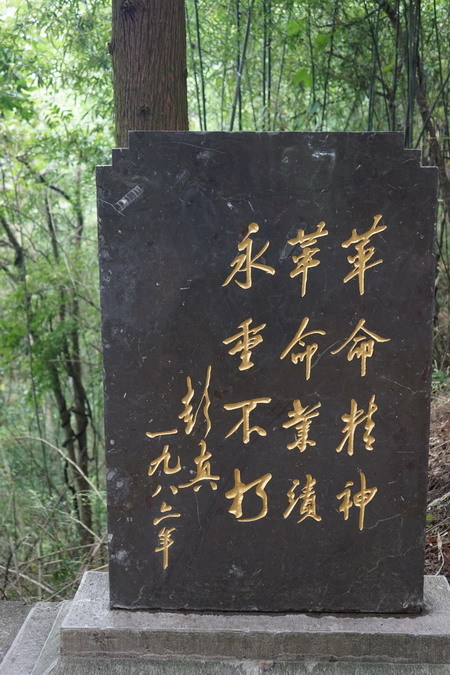 革命精神
革命業績
永垂不朽
彭真
一九八六年